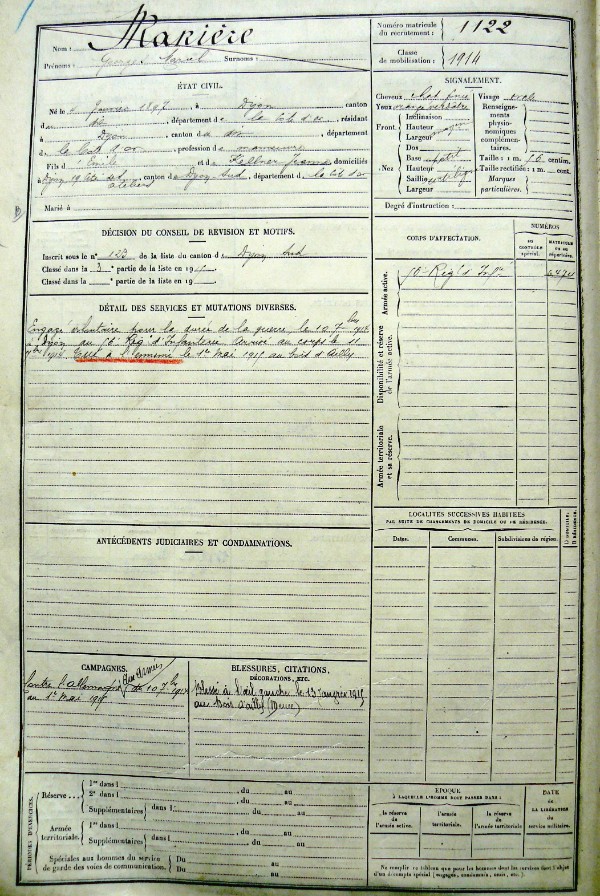 Nom : Manière
Prénoms : Georges Marcel Surnoms :
Numéro matricule
du recrutement : 1122
Classe
de mobilisation : 1914
ÉTAT CIVIL.
Né le Janvier 1897, à Dijon canton
dudit, département de la Côte d'or, résidant
à Dijon, canton dudit, département
de la Côte d'or, profession de manoeuvre
Fils d Emile et de domiciliés
à Dijon 19, canton de Dijon Sud, département de la Côte d'or
Marié à
SIGNALEMENT.
Cheveux chat foncé Visage ovale
Yeux orange verdâtre
Front Inclinaison
Hauteur
Largeur
Nez Dos
Base
Hauteur
Saillie
Largeur
Renseignements
physionomiques
complémentaires.
Taille : 1 m. centim.
Taille rectifiée : 1 m. cent.
Marques
particulières.
Degré d'instruction :
DÉCISION DU CONSEIL DE RÉVISION ET MOTIFS.
Inscrit sous le n° de la liste du canton de Dijon Sud
Classé dans la 3 partie de la liste en 191
Classé dans la partie de la liste en 19
CORPS D'AFFECTATION.
NUMÉROS
DU CONTRÔLE spécial.
MATRICULE ou au répertoire.
Armée active.
Régt d'Infie
Disponibilité et réserve
de l'armée active.
Armée territoriale
et sa réserve.
DÉTAIL DES SERVICES ET MUTATIONS DIVERSES.
Engagé volontaire pour la durée de la guerre le 10 7bre 1914
à Dijon au Rég d'Infanterie Arrivé au corps le 11
7bre 1914 Tué à l'ennemi le 1er Mai 1915 au bois d'Ailly
LOCALITÉS SUCCESSIVES HABITÉES
PAR SUITE DE CHANGEMENTS DE DOMICILE OU DE RÉSIDENCE.
Dates. Communes. Subdivisions de région. D domicile. R résidence.
ANTÉCÉDENTS JUDICIAIRES ET CONDAMNATIONS.
CAMPAGNES.
Contre l'Allemagne aux armées du 10 7bre 1914
au 1er Mai 1915
BLESSURES, CITATIONS,
DÉCORATIONS, ETC.
Blessé à l'oeil gauche le 13 Janvier 1915
au Bois d'Ailly (Meuse)
PÉRIODES D'EXERCICES.
Réserve...
1re dans l , du au
2e dans l , du au
Supplémentaires dans l , du au
Armée
territoriale.
1re dans l , du au
Supplémentaires dans l , du au
Spéciales aux hommes du service
de garde des voies de communication.
Du au
Du au
ÉPOQUE
À LAQUELLE L'HOMME DOIT PASSER DANS :
la réserve
de l'armée active.
l'armée
territoriale.
la réserve
de l'armée territoriale
DATE
de
LA LIBÉRATION
du
service militaire.
Ne remplir ce tableau que pour les hommes dont les services font l'objet
d'un décompte spécial (engagés, omis, etc.).